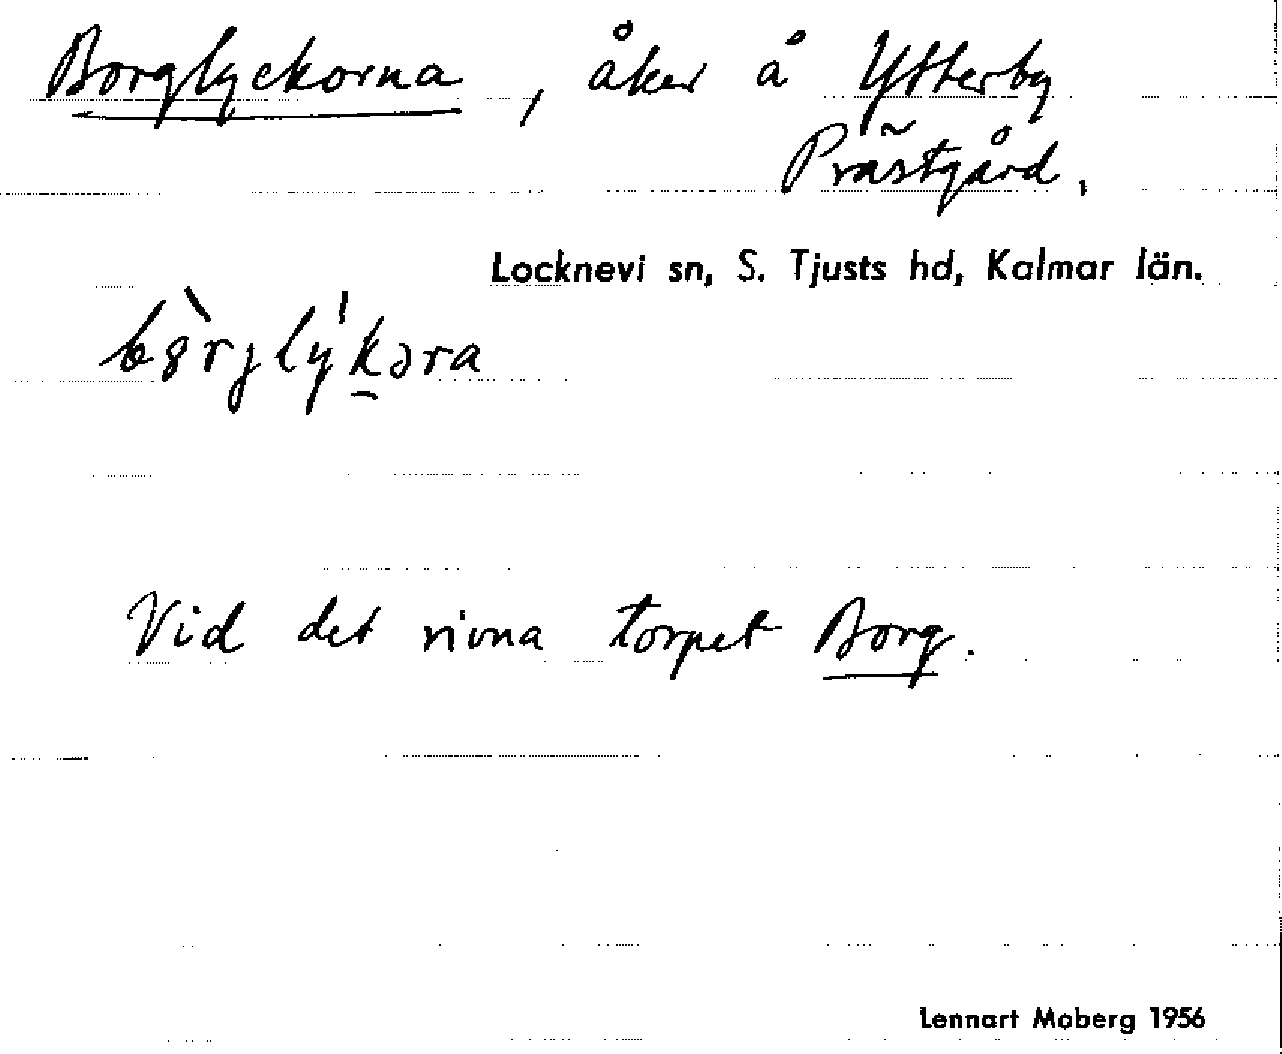 Borglyckorna, åker å Ytterby
Prästgård.
Locknevi sn, S. Tjusts hd, Kalmar län.
Vid det rivna torpet Borg.
Lennart Moberg 1956